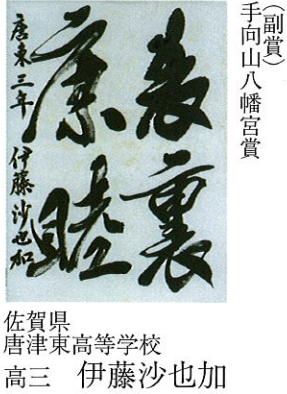 （副賞）
手向山八幡宮賞
表裏
康睦
唐東三年 伊藤沙也加
佐賀県
唐津東高等学校
高三 伊藤沙也加